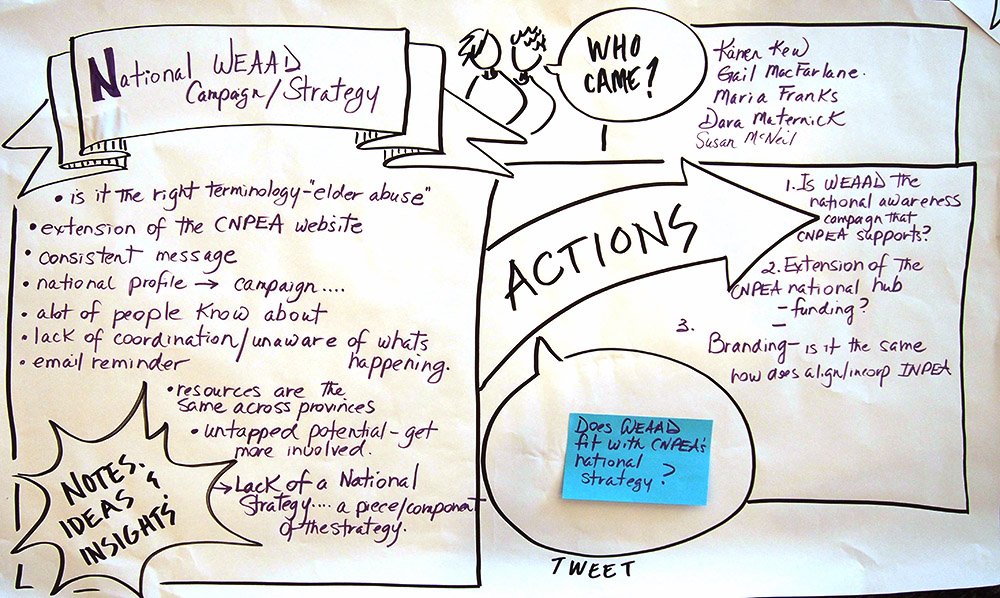 National WEAAD
Campaign/Strategy
WHO
CAME?
Karen Kew
Gail MacFarlane.
Maria Franks
Dara Maternick
Susan McNeil
• is it the right terminology-"elder abuse"
• extension of the CNPEA website
• consistent message
• national profile → campaign....
• alot of people know about
• lack of coordination/unaware of whats
happening.
• email reminder
• resources are the
same across provinces
• untapped potential - get
more involved.
→ Lack of a National
Strategy.... a piece/component
of the strategy.
NOTES,
IDEAS &
INSIGHTS
ACTIONS
1. Is WEAAD the
national awareness
campaign that
CNPEA supports?
2. Extension of the
CNPEA national hub
- funding?
3. –
Branding - is it the same
how does align/incorp INPEA
Does WEAAD
fit with CNPEA's
national
strategy?
TWEET